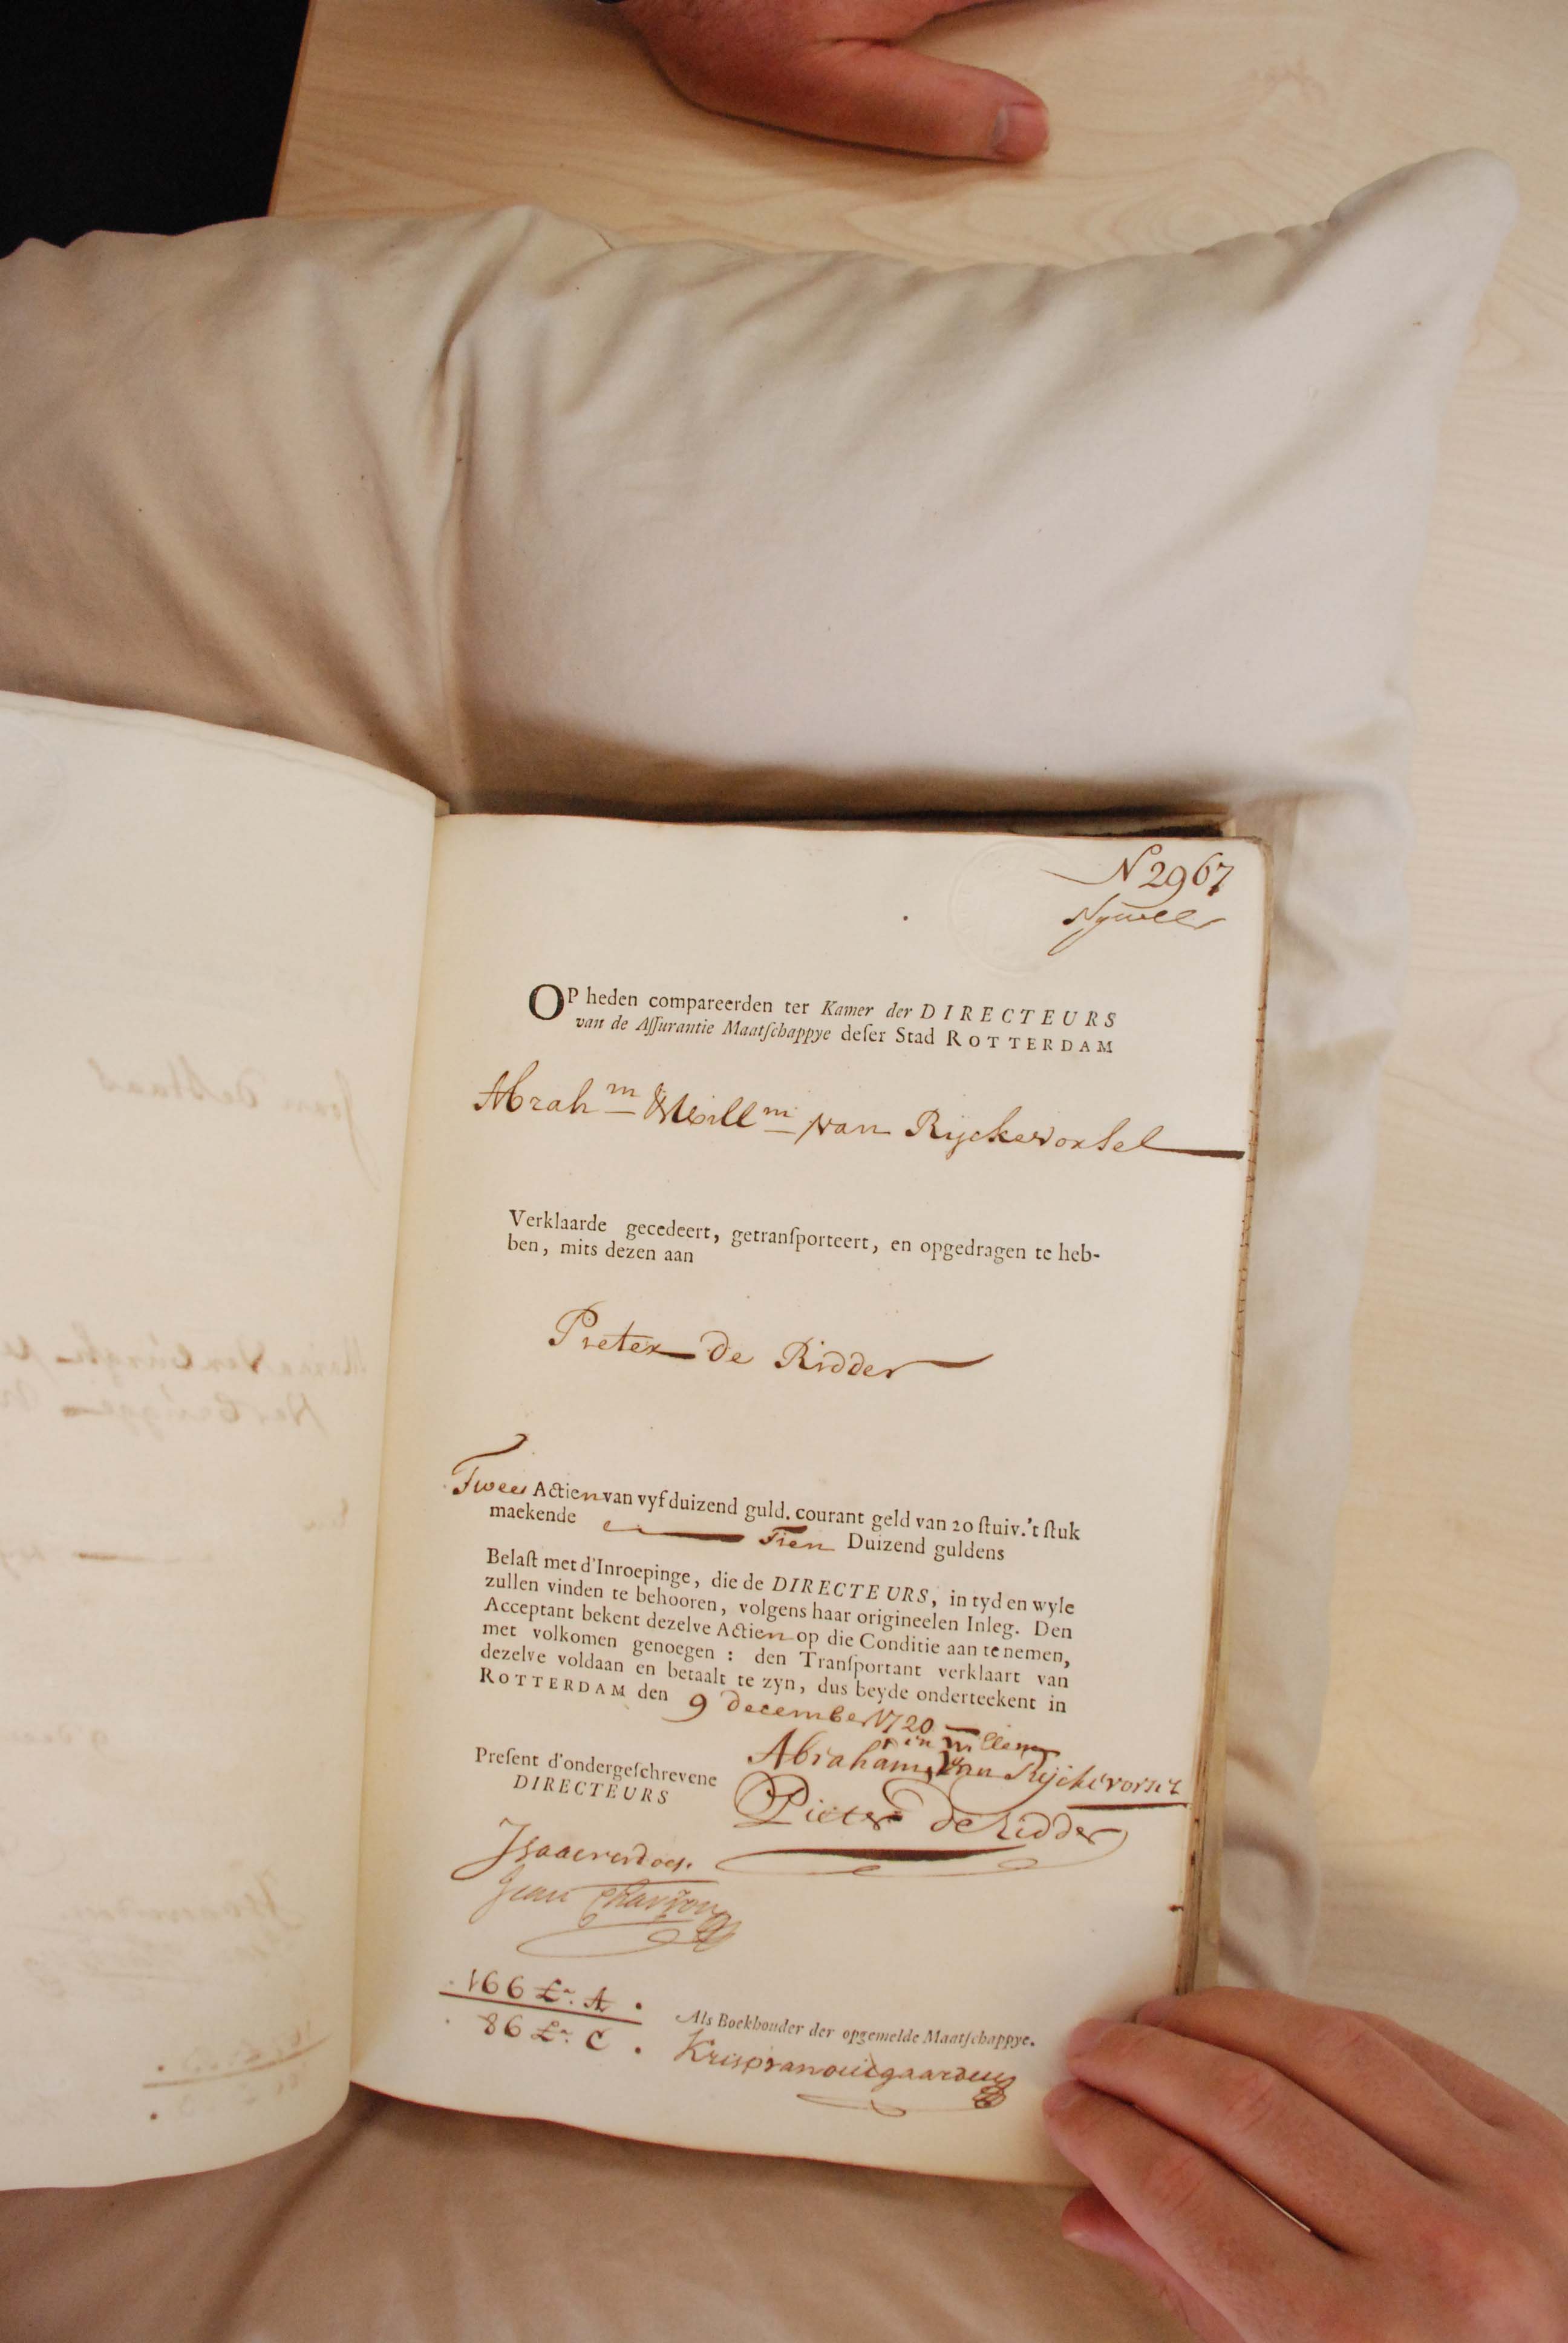 N 2967
OP heden compareerden ter Kamer der DIRECTEURS
van de Aſſurantie Maatſchappye deſer Stad ROTTERDAM
Abrah<sup>m</sup> Will<sup>m</sup> van Ryckevorsel
Verklaarde gecedeert, getranſporteert, en opgedragen te heb-
ben, mits dezen aan
Pieter De Ridder
Twee Actien van vyf duizend guld. courant geld van 20 ſtuiv. 't ſtuk
maekende Tien Duizend guldens
Belaſt met d'Inroepinge, die de DIRECTEURS, in tyd en wyle
zullen vinden te behooren, volgens haar origineelen Inleg. Den
Acceptant bekent dezelve Actien op die Conditie aan te nemen,
met volkomen genoegen : den Tranſportant verklaart van
dezelve voldaan en betaalt te zyn, dus beyde onderteekent in
ROTTERDAM den 9 december 1720
Willem
Abraham van Rijckevorsel
Preſent d'ondergeſchrevene
DIRECTEURS
Pieter de Ridder
Jean Charron
166 Lr. A.
86 Lr. C.
Als Boekhouder der opgemelde Maatſchappye.